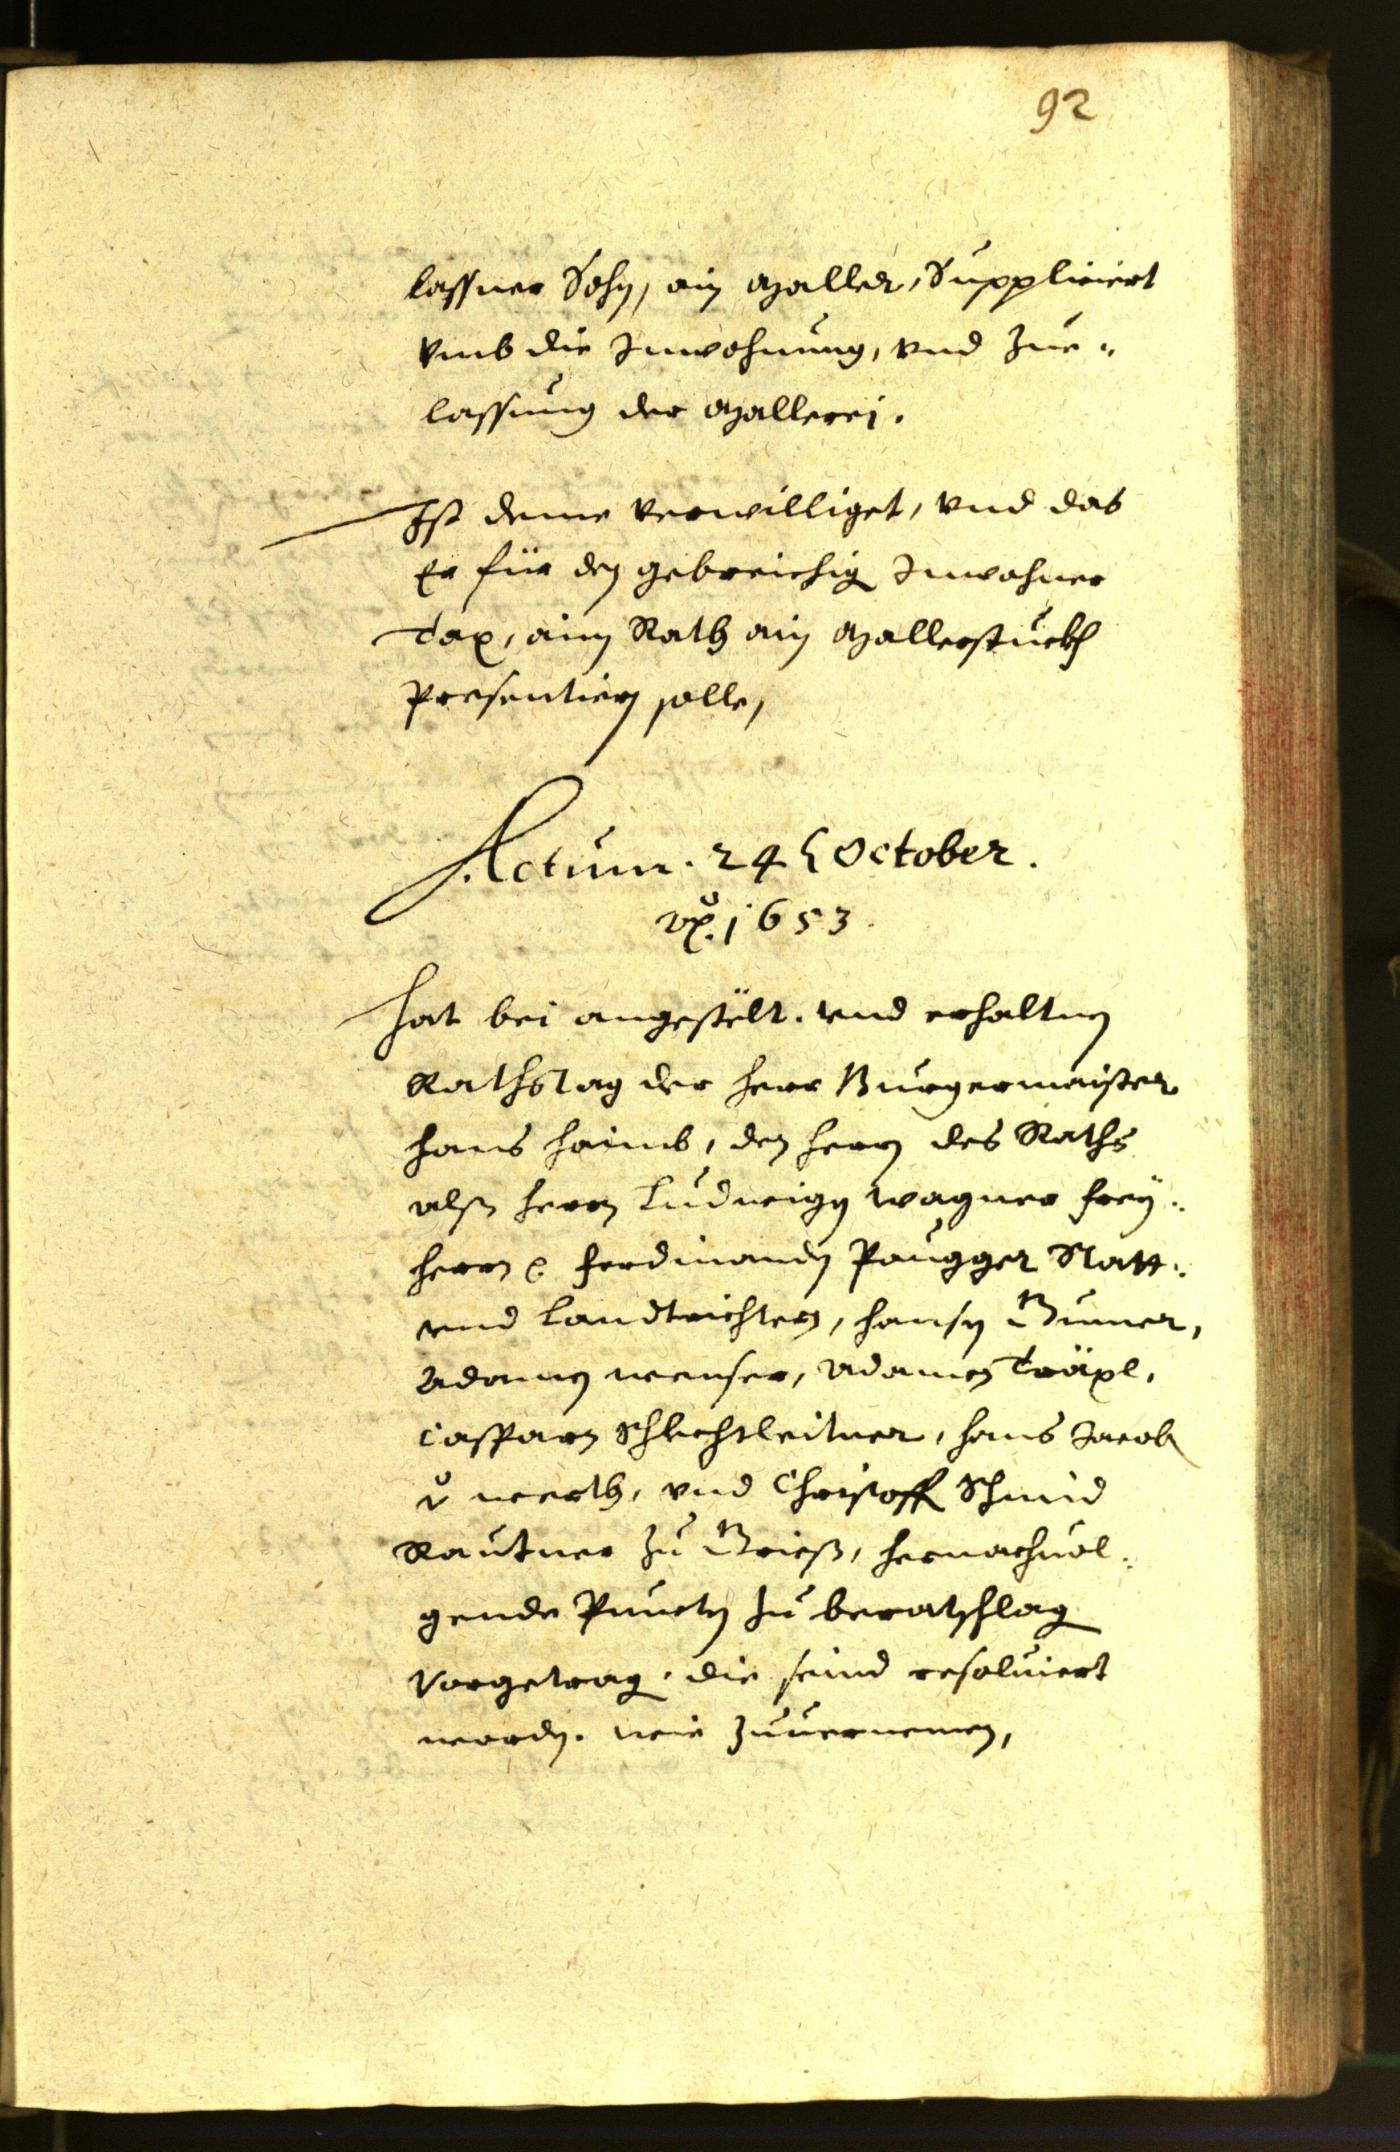 92
lassner Sohn, ain Maller, Suppliciert
vmb die Inwohnung, vnd Zue¬
lassung der Mallerej.
Ist deme verwilliget, vnd das
Er für den gebreichig Inwohner
Tax, aim Rath ain Mallerstuckh
Presentiern solle,
Actum. 24 October.
1653
Hat bei angestelt. vnd erhaltnen
Rathstag der Herr Burgermaister
Hans Haimb, den Herrn des Raths
alß Herrn Ludwigen Wagner frey¬
Herrn Ferdinanden Paugger Statt¬
vnd Landtrichtern, Hansen
Adamen Wenser, Adamen Träxl,
Casparn Schlechtleitner, Hans Jacob
v Werth, vnd Christoff Schmid
Rautner zu Grieß, hernachuol¬
gende Puncten zu beratschlag
Vorgetrag. die seind resoluiert
worden. wie Zuuernemen,